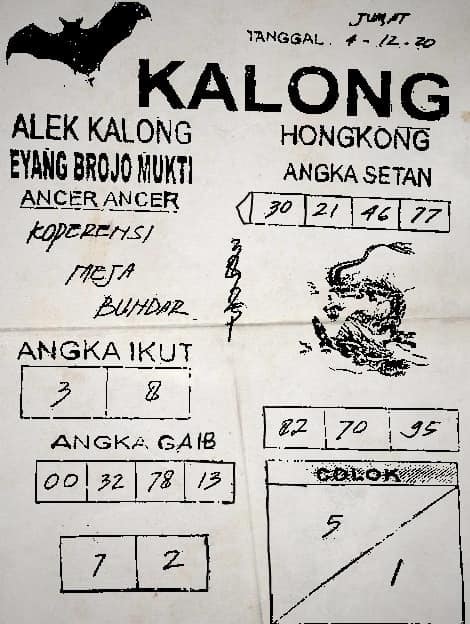 JUM,AT
TANGGAL. 4-12-20
KALONG
ALEK KALONG
EYANG BROJO MUKTI
ANCER ANCER
KOPERENSI
MEJA
BUNDAR
HONGKONG
ANGKA SETAN
30 21 46 77
ANGKA IKUT
3 8
ANGKA GAIB
00 32 78 13
7 2
82 70 95
COLOK
5
1